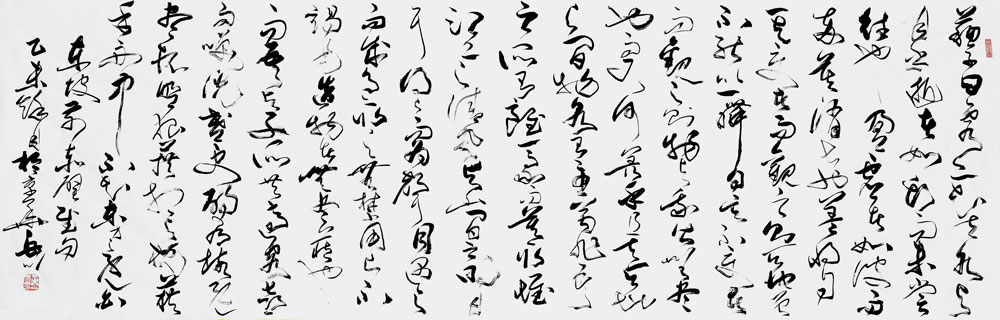 蘇子曰客亦知夫水與
月乎逝者如斯而未嘗
往也盈虚者如彼而
卒莫消長也蓋將自
其變者而觀之則天地曾
不能以一瞬自其不變者
而觀之則物與我皆無盡
也而又何羨乎且夫天地
之間物各有主苟非吾
之所有雖一毫而莫取惟
江上之清風與山間之明月
耳得之而為聲目遇之
而成色取之無禁用之不
竭是造物者之無盡藏也
而吾與子之所共適客喜
而笑洗盞更酌肴核既
盡杯盤狼藉相與枕藉
乎舟中不知東方之既白
東坡前赤壁賦句
乙未秋月於京華